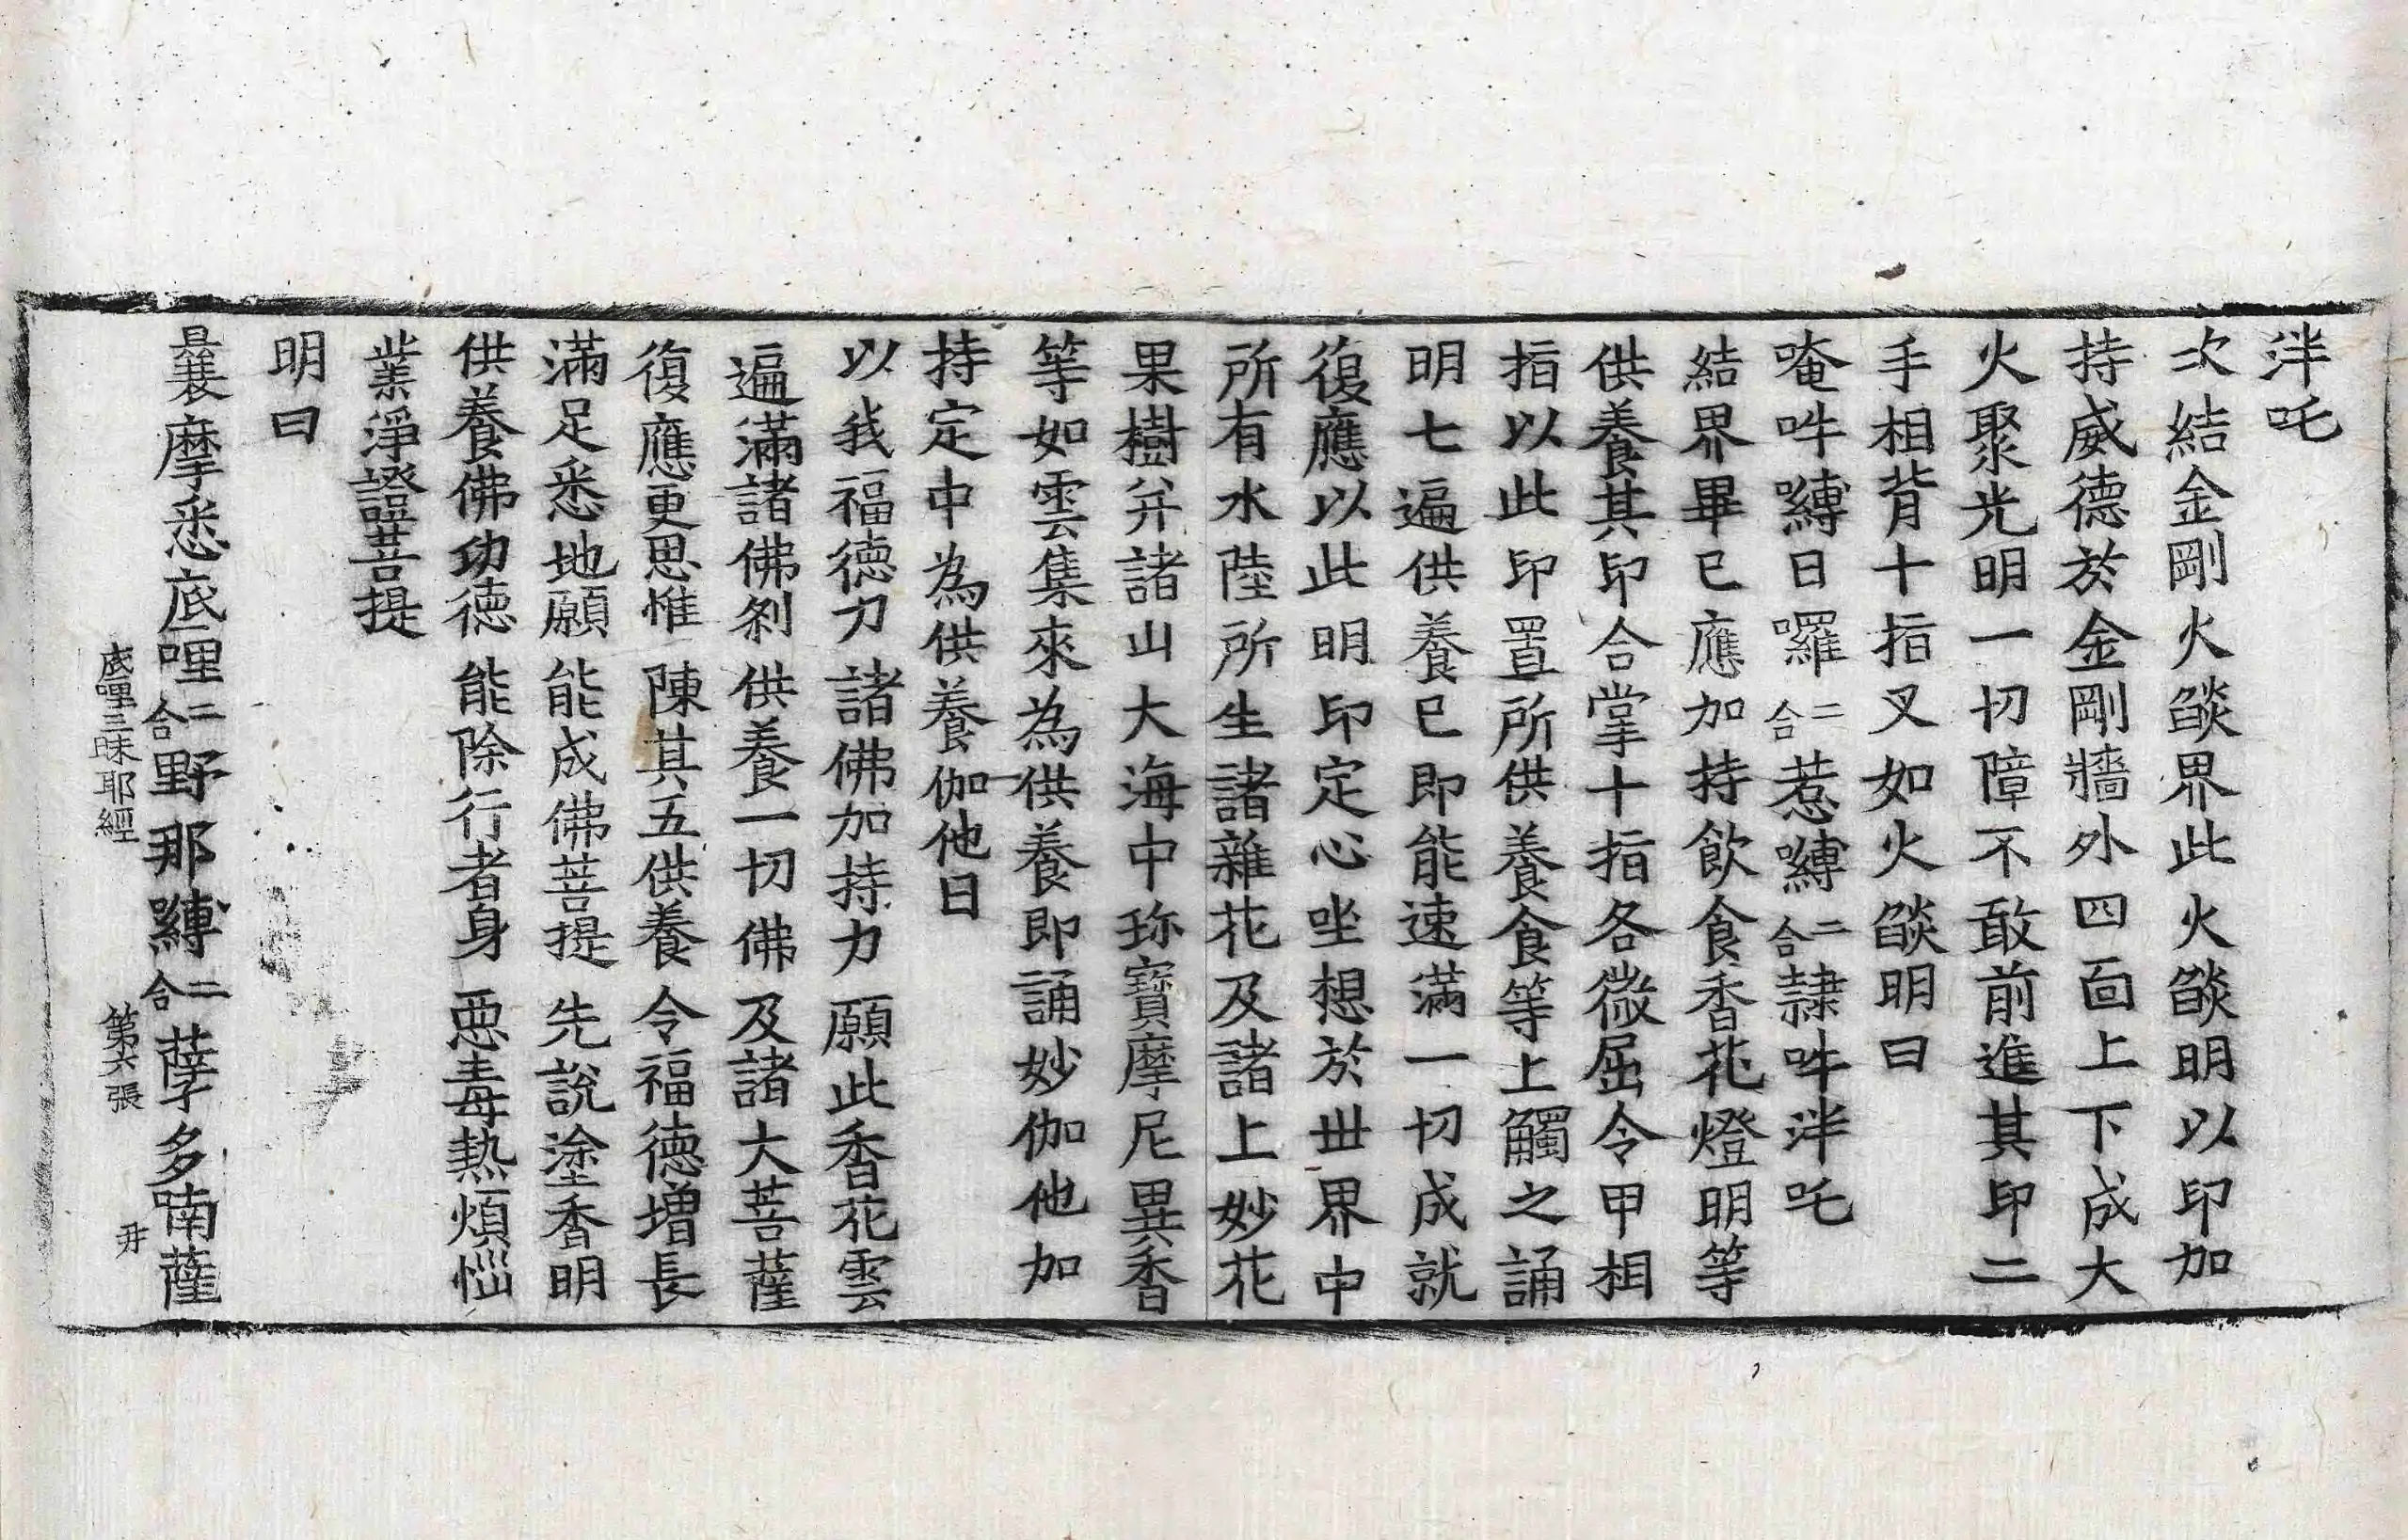 泮吒
次結金剛火燄界此火燄明以印加
持威德於金剛牆外四面上下成大
火聚光明一切障不敢前進其印二
手相背十指叉如火燄明曰
唵吽嚩日囉二合惹嚩二合隷吽泮吒
結界畢已應加持飲食香花燈明等
供養其印合掌十指各微屈令甲相
指以此印置所供養食等上觸之誦
明七遍供養已即能速滿一切成就
復應以此明印定心坐想於世界中
所有水陸所生諸雜花及諸上妙花
果樹并諸山大海中珎寶摩尼異香
等如雲集來為供養即誦妙伽他加
持定中為供養伽他曰
以我福德力 諸佛加持力 願此香花雲
遍滿諸佛刹 供養一切佛 及諸大菩薩
復應更思惟 陳其五供養 令福德增長
滿足悉地願 能成佛菩提 先說塗香明
供養佛功德 能除行者身 惡毒熱煩惱
業淨證菩提
明曰
曩摩悉底哩二合野那嚩二合孽多喃薩
底哩三昧耶經 第六張